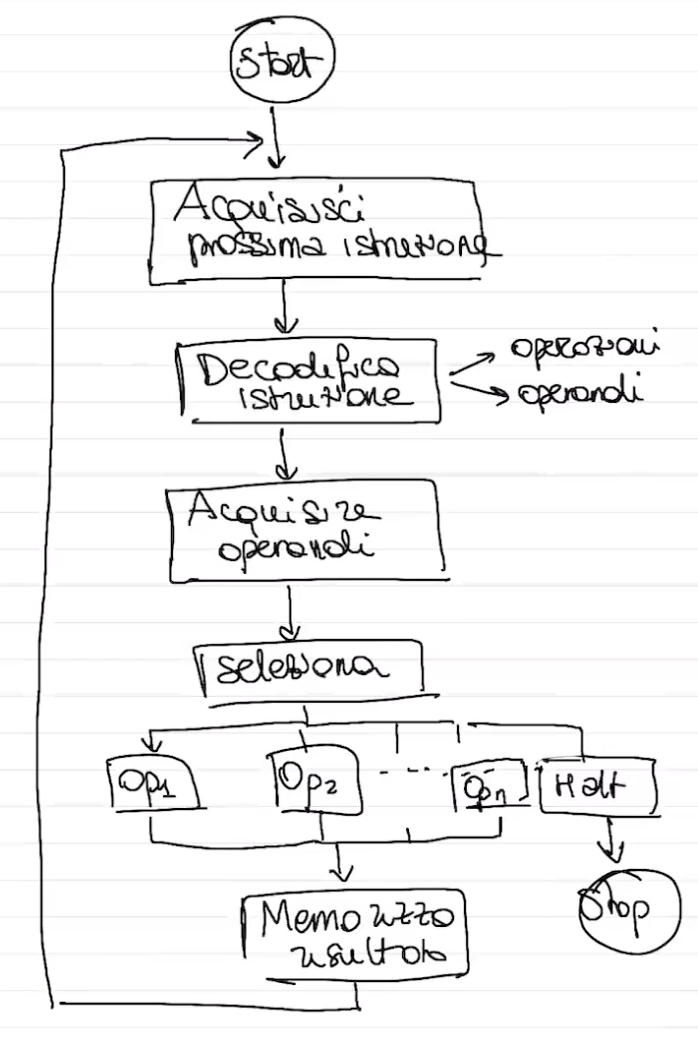 Start
Acquisisci
prossima istruzione
Decodifica
istruzione
operazioni
operandi
Acquisire
operandi
Seleziona
Op1
Op2
....
Opn
Halt
Stop
Memorizza
risultato